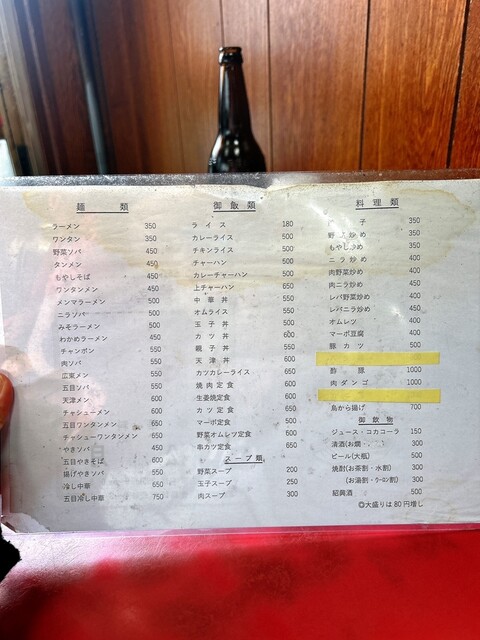 麺　類
ラーメン 350
ワンタン 350
野菜ソバ 450
タンメン 450
もやしそば 450
ワンタンメン 450
メンマラーメン 500
ニラソバ 500
みそラーメン 500
わかめラーメン 500
チャンポン 550
肉ソバ 550
広東メン 550
五目ソバ 550
天津メン 600
チャシューメン 600
五目ワンタンメン 600
チャシューワンタンメン 650
やきソバ 450
五目やきそば 600
揚げやきソバ 550
冷し中華 650
五目冷し中華 750
御飯類
ライス 180
カレーライス 500
チキンライス 500
チャーハン 500
カレーチャーハン 500
上チャーハン 650
中華丼 550
オムライス 550
玉子丼 500
カツ丼 600
親子丼 550
天津丼 600
カツカレーライス 650
焼肉定食 600
生姜焼定食 600
カツ定食 600
マーボ定食 500
野菜オムレツ定食 600
串カツ定食 650
スープ類
野菜スープ 200
玉子スープ 250
肉スープ 300
料理類
子 350
野 炒め 350
もやし炒め 350
ニラ炒め 400
肉野菜炒め 400
肉ニラ炒め 450
レバ野菜炒め 400
レバニラ炒め 450
オムレツ 400
マーボ豆腐 400
豚カツ 500
酢豚 1000
肉ダンゴ 1000
鳥から揚げ 700
御飲物
ジュース・コカコーラ 150
清酒(お燗・ 300
ビール(大瓶) 500
焼酎(お茶割・水割) 300
(お湯割・ウーロン割) 300
紹興酒 500
◎大盛りは80円増し